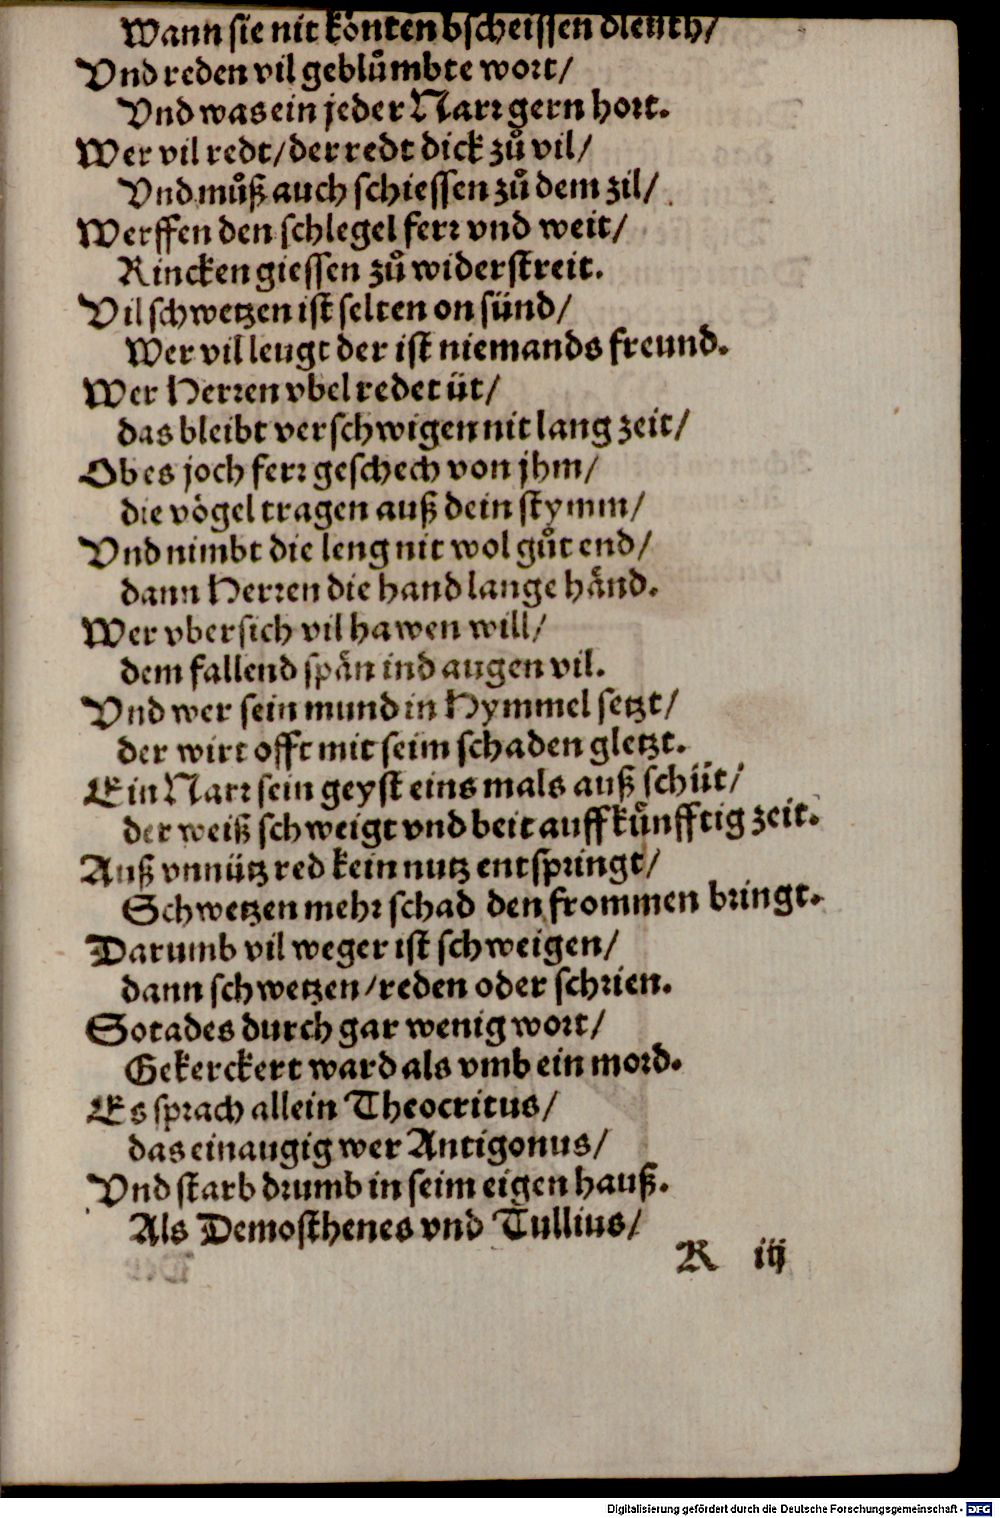 Wann sie nit koͤnten bscheissen dleuth/
Vnd reden vil gebluͤmbte wort/
Vnd was ein jeder Narr gern hort.
Wer vil redt/ der redt dick zuͦ vil/
Vnd muͦß auch schiessen zuͦ dem zil/
Werffen den schlegel ferr vnd weit/
Rincken giessen zuͦ widerstreit.
Vil schwetzen ist selten on sünd/
Wer vil leugt der ist niemands freund.
Wer Herren vbel redet üt/
das bleibt verschwigen nit lang zeit/
Ob es joch ferr geschech von jhm/
die voͤgel tragen auß dein stymm/
Vnd nimbt die leng nit wol guͦt end/
dann Herren die hand lange haͤnd.
Wer vbersich vil hawen will/
dem fallend spaͤn ind augen vil.
Vnd wer sein mund in Hymmel setzt/
der wirt offt mit seim schaden gletzt.
Ein Narr sein geyst eins mals auß schüt/
der weiß schweigt vnd beit auff kuͤnfftig zeit.
Auß vnnütz red kein nutz entspringt/
Schwetzen mehr schad den frommen bringt.
Darumb vil weger ist schweigen/
dann schwetzen/ reden oder schrien.
Sotades durch gar wenig wort/
Gekerckert ward als vmb ein mord.
Es sprach allein Theocritus/
das einaugig wer Antigonus/
Vnd starb drumb in seim eigen hauß.
Als Demosthenes vnd Tullius/
R iij
Digitalisierung gefördert durch die Deutsche Forschungsgemeinschaft - DFG